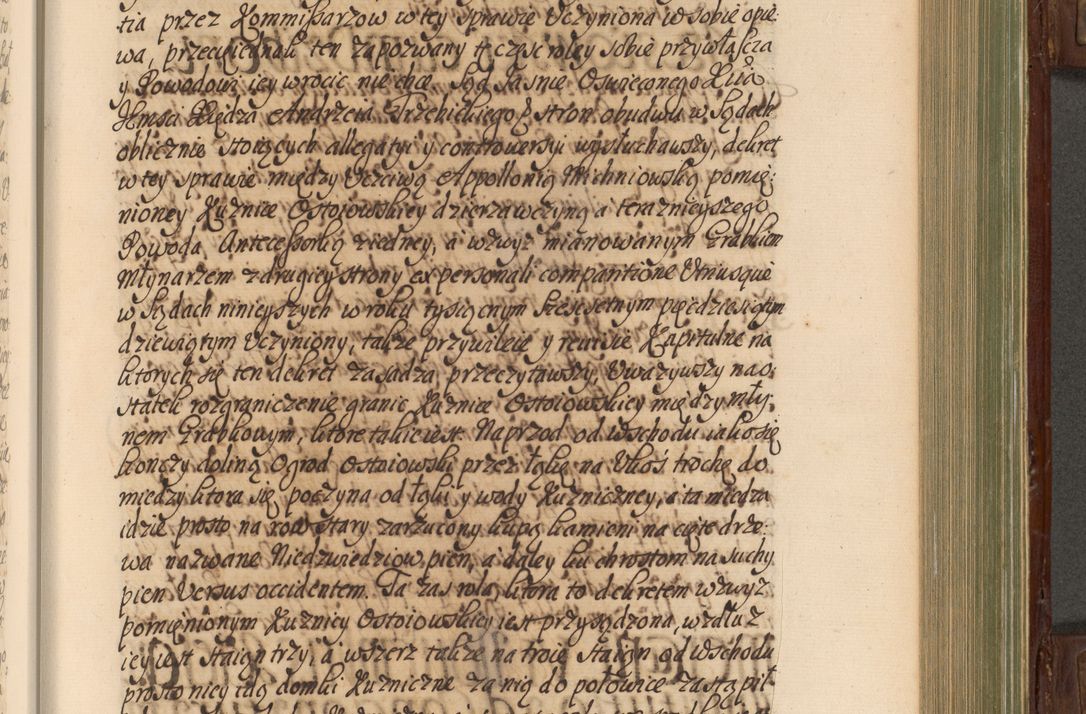 tia przez Kommissarzow w tey sprawie Uczyniona w sobie opie-
wa, przeciednali ten zapozwany tę częsc roley sobie przywłascza
y Powodowi iey wrocic nie chce. Sąd Jasnie Oswieconego Xcia
Jmsci Xiędza Andrzeia Trzebickiego z stron obudwu w Sądach
oblicznie stoiących allegatyi y controversyi wysłuchawszy, dekret
w tey sprawie między Uczciwą Appollonią Michniowską pomię:
nioney Kuznice Ostoiowskiey dzierzawczyną a teraznieyszego
Powoda Antecessorką ziedney, a wzwyz mianowanym Grabkiem
Młynarzem z drugiey strony ex personali comparitione Utriusque
w Sądach ninieyszych w roku tysiącnym szescsetnym pięcdziesiątym
dziewiątym Uczyniony, takze przywileie y rewisie Kapitulne na
ktorych się ten dekret zasadza przeczytawszy, Uwazywszy nao:
statek rozgraniczenie granic Kuznice Ostoiowskiey między mły:
nem Grabkowym, ktore takie iest. Naprzod od wschodu iako się
konczy doliną Ogrod Ostoiowski przez łąkę na Ukoś trochę do
miedzy ktora się poczyna od łąki y wody Kuzniczney, a ta miedza
idzie prosto na row stary zarzucony kupą kamieni na cięte drze:
wa nazwane Niedzwiedziow pien, a daley ku chrostom na suchy
pien versus occidentem. Ta zas rola, ktora to dekretem wzwyz
pomięnionym Kuznicy Ostoiowskiey iest przysądzona, wzdłuz
iey iest staian trzy, a wszerz takze na troie staian od wschodu
prosto niey idą domki Kuzniczne za nią do połowice zastąpił